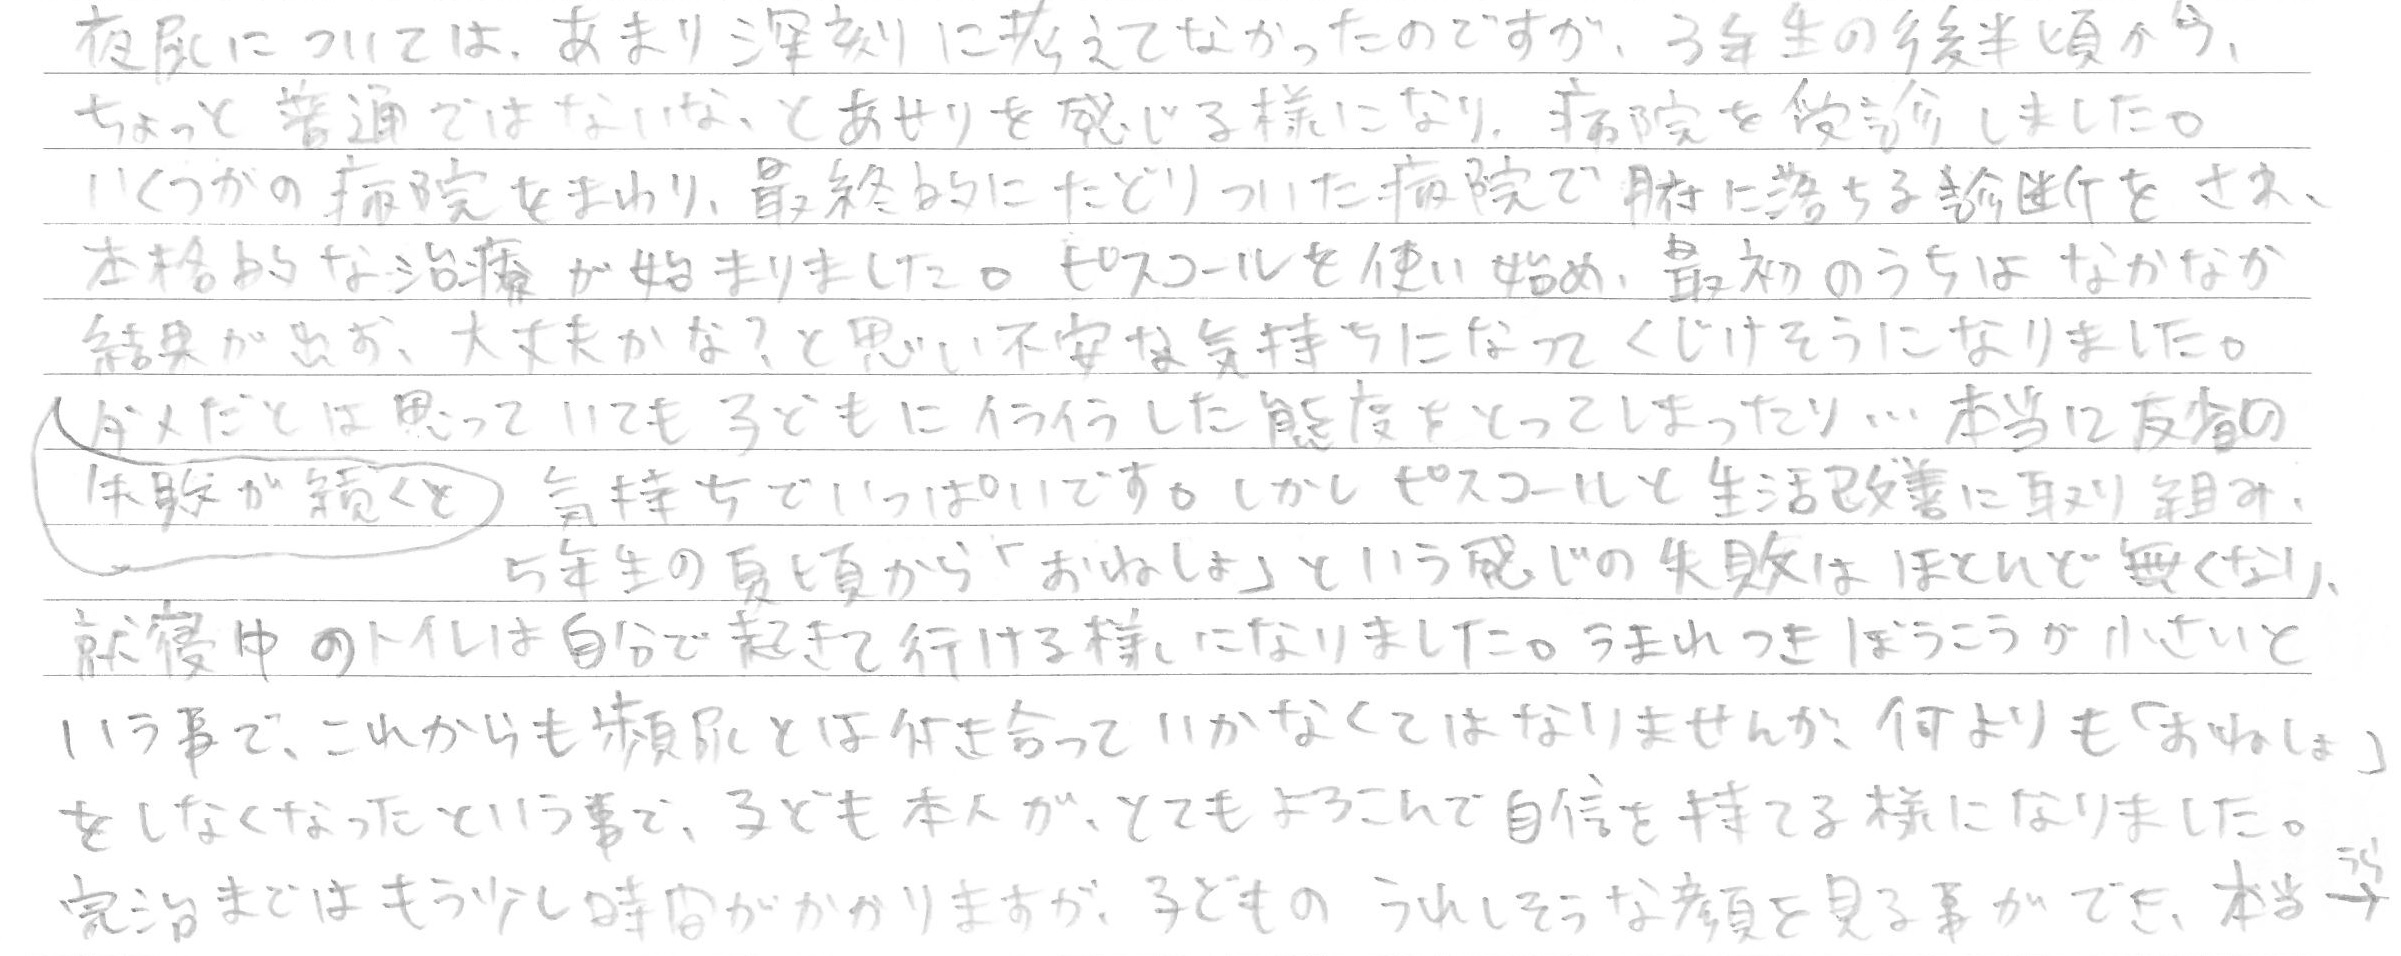 夜尿については、あまり深刻に考えてなかったのですが、3年生の後半頃から、
ちょっと普通ではないな、とあせりを感じる様になり、病院を受診しました。
いくつかの病院をまわり、最終的にたどりついた病院で腑に落ちる診断をされ、
本格的な治療が始まりました。ピスコールを使い始め、最初のうちはなかなか
結果が出ず、大丈夫かな?と思い不安な気持ちになってくじけそうになりました。
ダメだとは思っていても子どもにイライラした態度をとってしまったり…本当に反省の
失敗が続くと 気持ちでいっぱいです。しかしピスコールと生活改善に取り組み、
5年生の夏頃から「おねしょ」という感じの失敗はほとんど無くなり、
就寝中のトイレは自分で起きて行ける様になりました。うまれつきぼうこうが小さいと
いう事で、これからも頻尿とは付き合っていかなくてはなりませんが、何よりも「おねしょ」
をしなくなったという事で、子ども本人が、とてもよろこんで自信を持てる様になりました。
完治まではもう少し時間がかかりますが、子どものうれしそうな顔を見る事ができ、本当
うら→